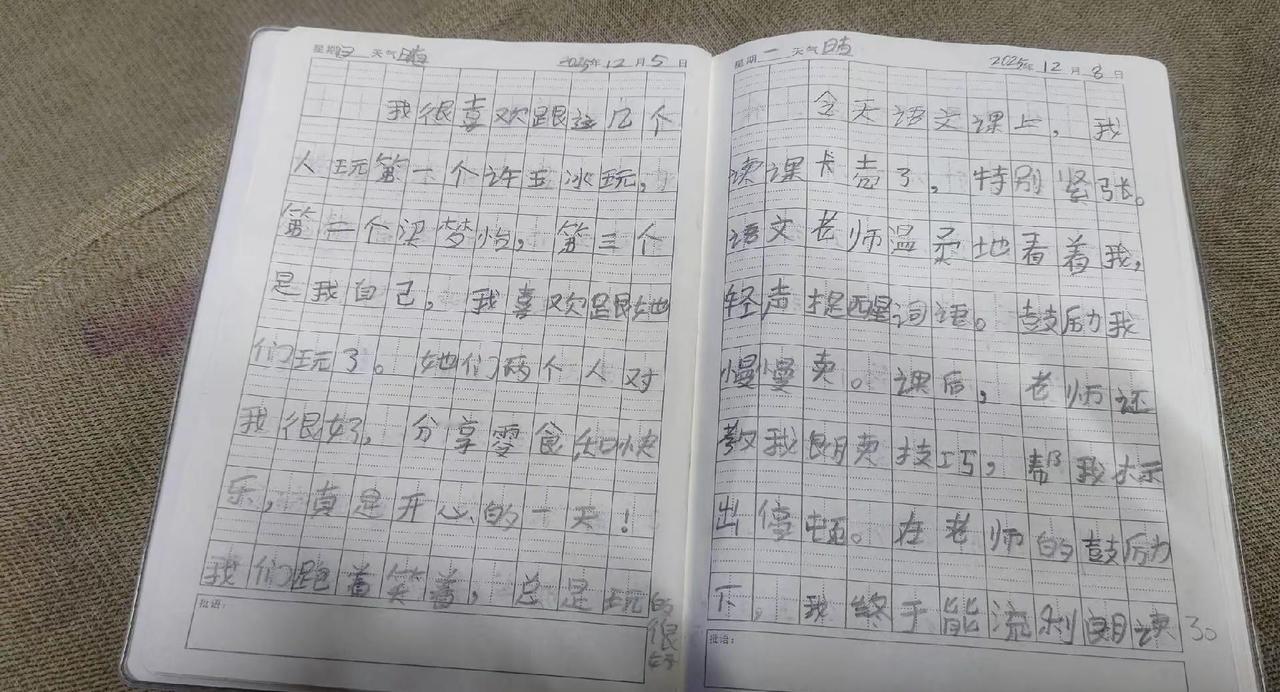 星期日 天气晴 2025年12月5日
我很喜欢跟这几个
人玩第一个许玉冰玩，
第二个梁梦怡，第三个
是我自己，我喜欢跟她
们玩了。她们两个人对
我很好，分享零食和快
乐，真是开心的一天！
我们跑着笑着，总是玩的很好
批语：
星期一 天气晴 2025年12月8日
今天语文课上，我
读课卡壳了，特别紧张。
语文老师温柔地看着我，
轻声提醒词语。鼓励我
慢慢卖。课后，老师还
教我朗卖技巧，帮我标
出停顿。在老师的鼓励
下，我终于能流利朗读 30
批语：